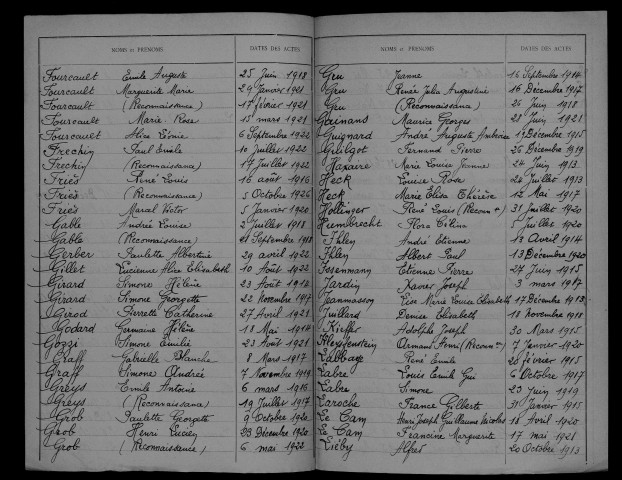 NOMS et PRÉNOMS DATES DES ACTES
Fourcault Emile Auguste 25 Juin 1918
Fourcault Marguerite Marie 29 Janvier 1921
Fourcault (Reconnaissance) 17 février 1921
Fourcault Marie Rose 15 mars 1921
Fourcault Alice Léonie 6 Septembre 1922
Frechin Paul Emile 10 Juillet 1922
Frechin (Reconnaissance) 17 Juillet 1922
Friès René Louis 16 août 1916
Friès (Reconnaissance) 5 Octobre 1926
Friès Marcel Victor 5 Janvier 1920
Gable Andrée Louise 2 Juillet 1918
Gable (Reconnaissance) 21 Septembre 1918
Gerber Paulette Albertine 29 avril 1922
Gillet Lucienne Alice Elisabeth 10 Août 1922
Girard Simone Hélène 23 Août 1912
Girard Simone Georgette 22 Novembre 1917
Gerod Pierrette Catherine 27 Avril 1921
Godard Germaine Hélène 18 Mai 1914
Gozzi Simone Emilie 23 Août 1921
Graff Gabrielle Blanche 8 Mars 1917
Graff Simone Andrée 7 Novembre 1919
Greys Emile Antoine 6 mars 1916
Greys (Reconnaissance) 19 Juillet 1917
Grob Paulette Georgette 9 Octobre 1920
Grob Henri Lucien 23 Décembre 1920
Grob (Reconnaissance) 6 mai 1922
NOMS et PRÉNOMS DATES DES ACTES
Geu Jeanne 16 Septembre 1914
Geu Renée Julia Augustine 16 Décembre 1917
Geu (Reconnaissance) 26 Juin 1918
Guinans Maurice Georges 28 Juin 1921
Guignard André Auguste Ambroise 17 Décembre 1915
Guilgot Fernand Pierre 26 Décembre 1919
Haxaire Marie Louise Jeanne 24 Juin 1913
Heck Louise Rose 26 Juillet 1913
Heck Marie Elisa Thérèse 12 Mai 1917
Hollinger René Louis (Reconn ce) 31 Juillet 1920
Humbrecht Flora Célina 5 Juillet 1920
Ihley André Etienne 13 Avril 1914
Ihley Albert Paul 13 Décembre 1920
Issenmann Etienne Pierre 24 Juin 1915
Jardin Xavier Joseph 3 mars 1917
Jeanmasson Lise Marie Louise Elisabeth 17 Décembre 1918
Juillard Denise Elisabeth 18 Novembre 1918
Kieffer Adolphe Joseph 30 Mars 1915
Kleyenstein Armand Henri (Reconn ce) 7 Janvier 1920
Labbaye René Emile 26 février 1915
Labre Louis Emile Gui 6 Octobre 1917
Labre Simone 23 Juin 1919
Laroche France Gilberte 31 Janvier 1915
Le Cam Henri Joseph Guillaume Nicolas 18 Avril 1920
Le Cam Francine Marguerite 17 mai 1921
Liéby Alfred 20 Octobre 1913